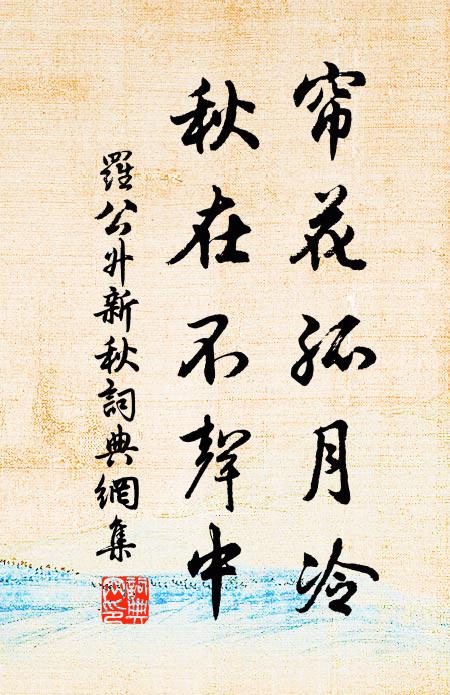 帘花孤月冷
秋在不聲中
羅公升新秋詞典網集